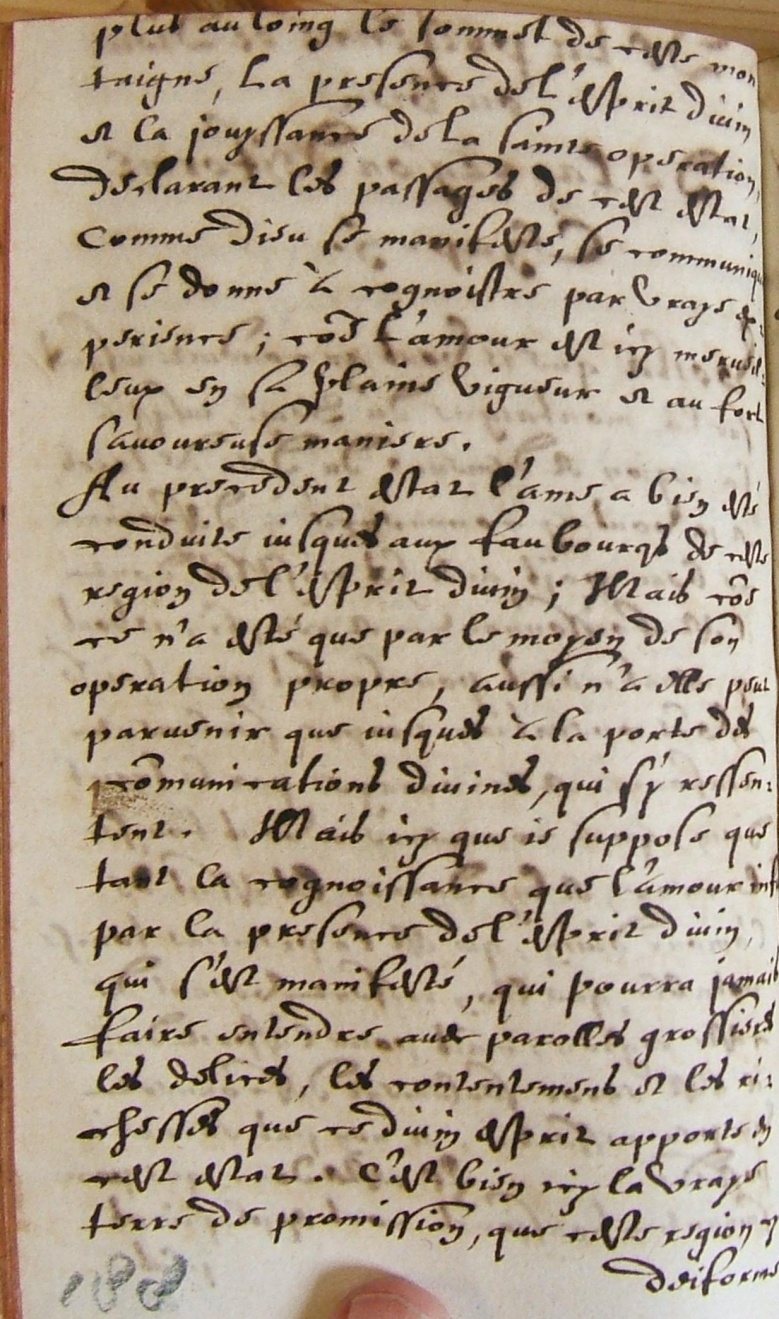 plus au loing le sommet de ceste mon
taigne, La presence de l'Esprit divin
et la jouyssance de la sainte operation,
declarant les passages de cest estat,
Comme Dieu se manifeste, se communiqu
et se donne à cognoistre par vraye ex
perience; cõe l'amour est icy merveil:
leux en sa plaine vigueur et au fort
savoureuse maniere.
Au precedent estat l'ame a bien esté
conduite iusques aux faubourgs de ceste
region de l'Esprit divin; Mais cõe
ce n'a esté que par le moyen de son
operation propre, aussi n'a elle peut
parvenir que iusques à la porte des
cõmunications divines, qui s'y ressen:
tent. Mais icy que ie suppose que
tant la cognoissance que l'amour
par la presence de l'Esprit divin,
qui s'est manifesté, qui pourra jamais
faire entendre avec parolles grossieres
les delices, les contentemens et les ri:
chesses que ce divin Esprit apporte en
cest estat. C'est bien icy la vraye
terre de promission, que ceste region
deiforme
188